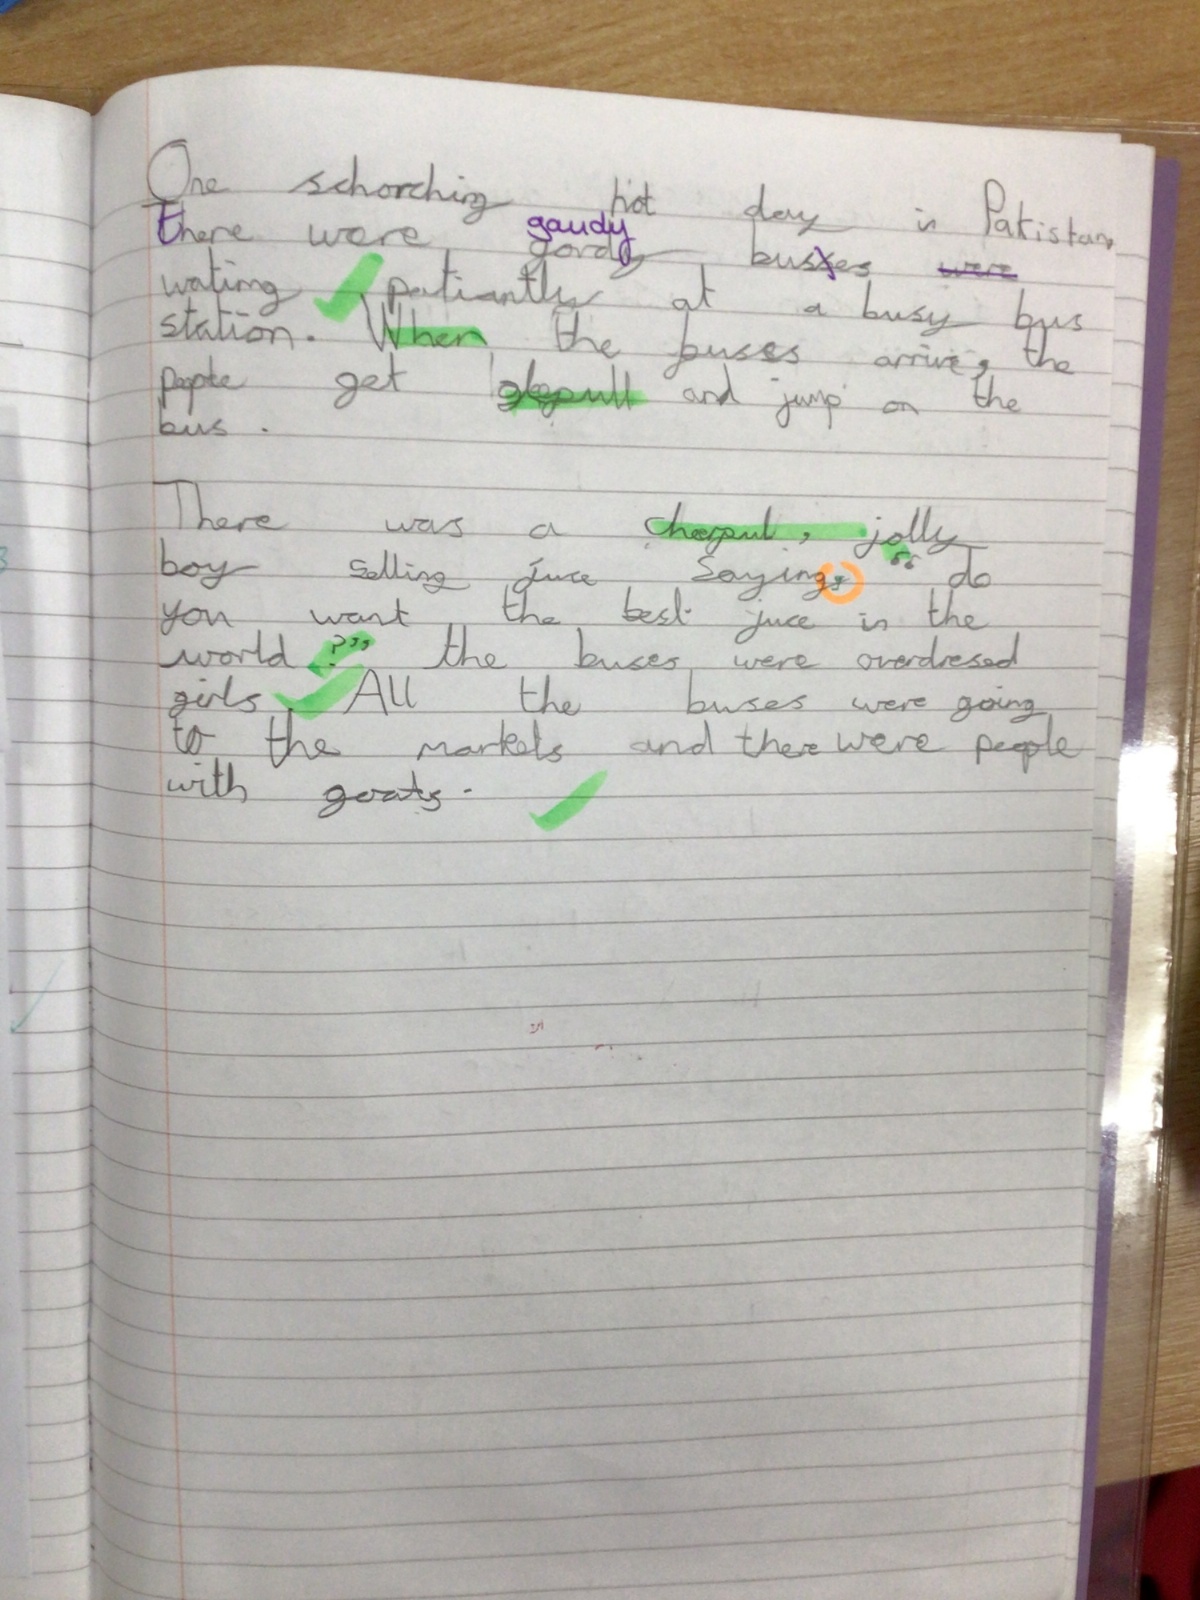 One schorching hot day in Pakistan,
there were gaudy buses were
wating patiantly at a busy bus
station. When the buses arrive, the
people get and jump on the
bus.
There was a cheepul, jolly
boy selling juce saying, "do
you want the best juce in the
world?" the buses were overdresed
girls. All the buses were going
to the markets and there were people
with goats.